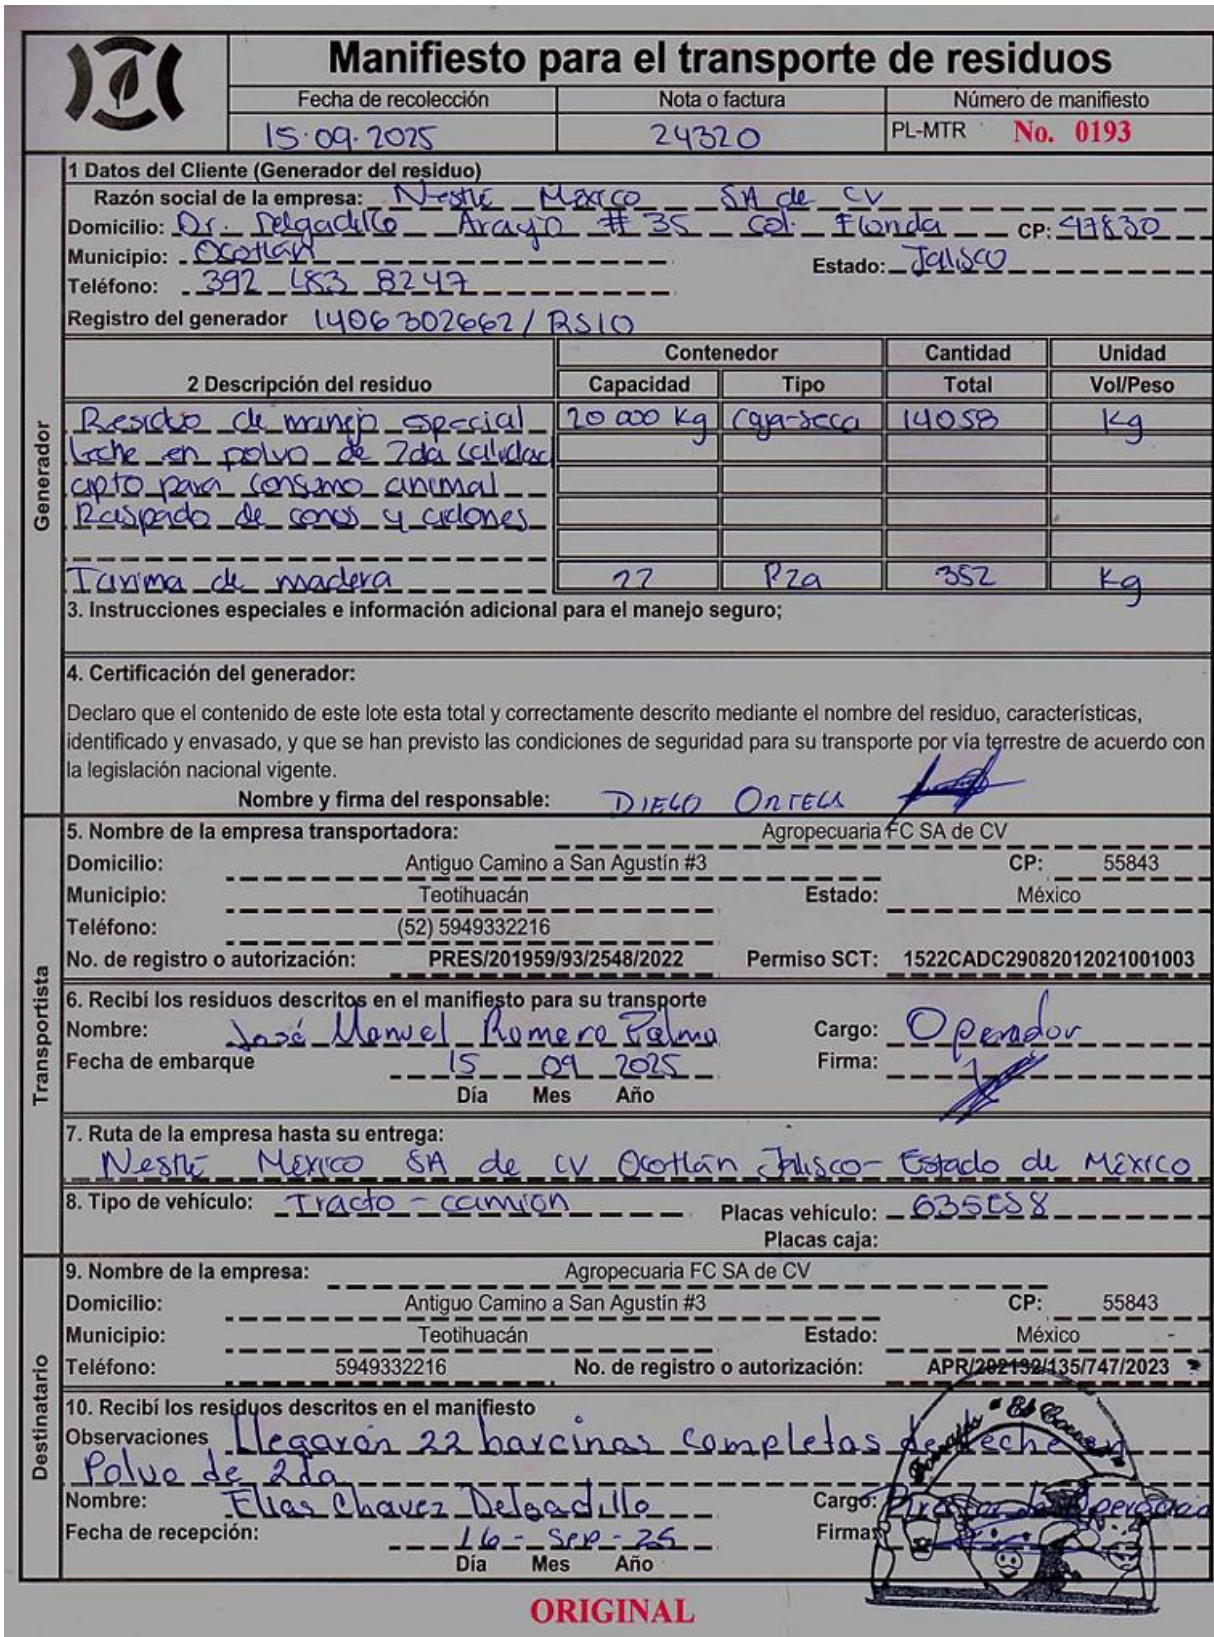 Manifiesto para el transporte de residuos
Fecha de recolección Nota o factura Número de manifiesto
15.09.2025 24320 PL-MTR No. 0193
1 Datos del Cliente (Generador del residuo)
Razón social de la empresa: Nestlé México SA de CV
Domicilio: Dr. Delgadillo Arayjo # 35 Col. Florida CP: 47830
Municipio: Ocotlán
Estado: Jalisco
Teléfono: 392 483 8247
Registro del generador 1406302662/RS10
Contenedor Cantidad Unidad
2 Descripción del residuo Capacidad Tipo Total Vol/Peso
Residuo de manejo especial 20 000 Kg Caja-seca 14058 Kg
leche en polvo de 2da calidad
apto para consumo animal
Raspado de conos y ciclones
Tarima de madera 22 Pza 352 Kg
Generador
3. Instrucciones especiales e información adicional para el manejo seguro;
4. Certificación del generador:
Declaro que el contenido de este lote esta total y correctamente descrito mediante el nombre del residuo, características,
identificado y envasado, y que se han previsto las condiciones de seguridad para su transporte por vía terrestre de acuerdo con
la legislación nacional vigente.
Nombre y firma del responsable: DIEGO ORTEGA
5. Nombre de la empresa transportadora: Agropecuaria FC SA de CV
Domicilio: Antiguo Camino a San Agustín #3 CP: 55843
Municipio: Teotihuacán Estado: México
Teléfono: (52) 5949332216
No. de registro o autorización: PRES/201959/93/2548/2022 Permiso SCT: 1522CADC29082012021001003
Transportista
6. Recibí los residuos descritos en el manifiesto para su transporte
Nombre: José Manuel Romero Palma Cargo: Operador
Fecha de embarque 15 09 2025 Firma:
Día Mes Año
7. Ruta de la empresa hasta su entrega:
Nestlé México SA de CV Ocotlán Jalisco- Estado de México
8. Tipo de vehículo: Tracto-camión Placas vehículo: 635ES8
Placas caja:
9. Nombre de la empresa: Agropecuaria FC SA de CV
Domicilio: Antiguo Camino a San Agustín #3 CP: 55843
Municipio: Teotihuacán Estado: México
Teléfono: 5949332216 No. de registro o autorización: APR/202132/135/747/2023
Destinatario
10. Recibí los residuos descritos en el manifiesto
Observaciones Llegaron 22 barcinas completas de leche en
Polvo de 2da
Nombre: Elias Chavez Delgadillo Cargo: Director de Operacion
Fecha de recepción: 16-Sep-25 Firma
Día Mes Año
ORIGINAL